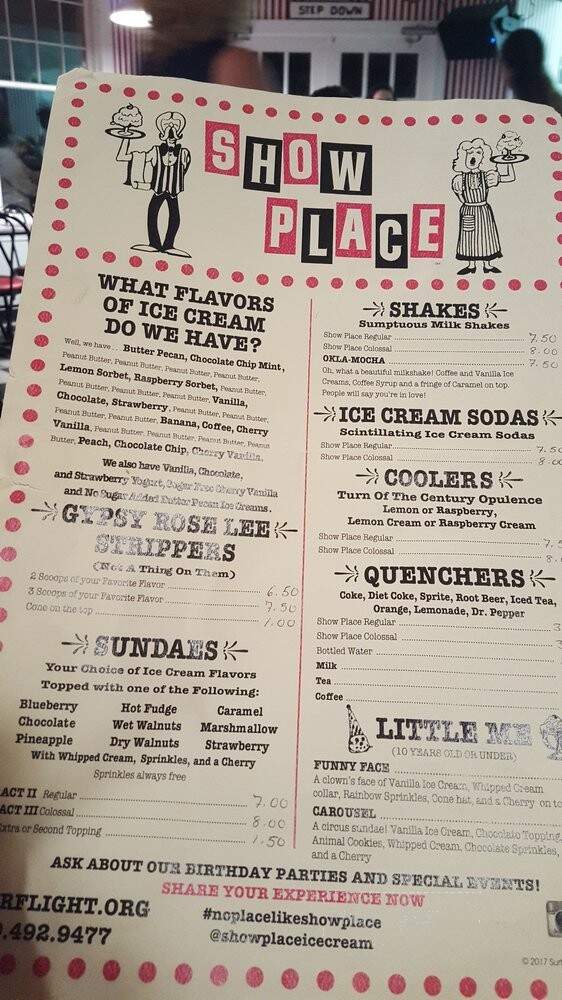 STEP DOWN
SHOW
PLACE
WHAT FLAVORS
OF ICE CREAM
DO WE HAVE?
Well, we have... Butter Pecan, Chocolate Chip Mint,
Peanut Butter, Peanut Butter, Peanut Butter, Peanut Butter,
Lemon Sorbet, Raspberry Sorbet, Peanut Butter,
Peanut Butter, Peanut Butter, Peanut Butter, Vanilla,
Chocolate, Strawberry, Peanut Butter, Peanut Butter,
Peanut Butter, Peanut Butter, Banana, Coffee, Cherry
Vanilla, Peanut Butter, Peanut Butter, Peanut Butter, Peanut
Butter, Peach, Chocolate Chip, Cherry Vanilla.
We also have Vanilla, Chocolate,
and Strawberry Yogurt, Sugar Free Cherry Vanilla
and No Sugar Added Butter Pecan Ice Creams.
GYPSY ROSE LEE
STRIPPERS
(Not A Thing On Them)
2 Scoops of your Favorite Flavor 6.50
3 Scoops of your Favorite Flavor 7.50
Cone on the top 1.00
SUNDAES
Your Choice of Ice Cream Flavors
Topped with one of the Following:
Blueberry Hot Fudge Caramel
Chocolate Wet Walnuts Marshmallow
Pineapple Dry Walnuts Strawberry
With Whipped Cream, Sprinkles, and a Cherry
Sprinkles always free
ACT II Regular 7.00
ACT III Colossal 8.00
Extra or Second Topping 1.50
SHAKES
Sumptuous Milk Shakes
Show Place Regular 7.50
Show Place Colossal 8.00
OKLA-MOCHA 7.50
Oh, what a beautiful milkshake! Coffee and Vanilla Ice
Creams, Coffee Syrup and a fringe of Caramel on top.
People will say you're in love!
ICE CREAM SODAS
Scintillating Ice Cream Sodas
Show Place Regular 7.50
Show Place Colossal 8.00
COOLERS
Turn Of The Century Opulence
Lemon or Raspberry,
Lemon Cream or Raspberry Cream
Show Place Regular 7.
Show Place Colossal 8.
QUENCHERS
Coke, Diet Coke, Sprite, Root Beer, Iced Tea,
Orange, Lemonade, Dr. Pepper
Show Place Regular 3
Show Place Colossal
Bottled Water
Milk
Tea
Coffee
LITTLE ME
(10 YEARS OLD OR UNDER)
FUNNY FACE
A clown's face of Vanilla Ice Cream, Whipped Cream
collar, Rainbow Sprinkles, Cone hat, and a Cherry on to
CAROUSEL
A circus sundae! Vanilla Ice Cream, Chocolate Topping,
Animal Cookies, Whipped Cream, Chocolate Sprinkles,
and a Cherry
ASK ABOUT OUR BIRTHDAY PARTIES AND SPECIAL EVENTS!
SHARE YOUR EXPERIENCE NOW
RFLIGHT.ORG
.492.9477
#noplacelikeshowplace
@showplaceicecream
© 2017 Sur